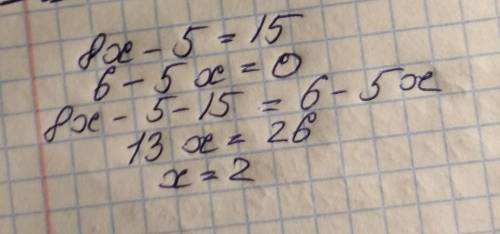 8x - 5 = 15
6 - 5x = 0
8x - 5 - 15 = 6 - 5x
13x = 26
x = 2